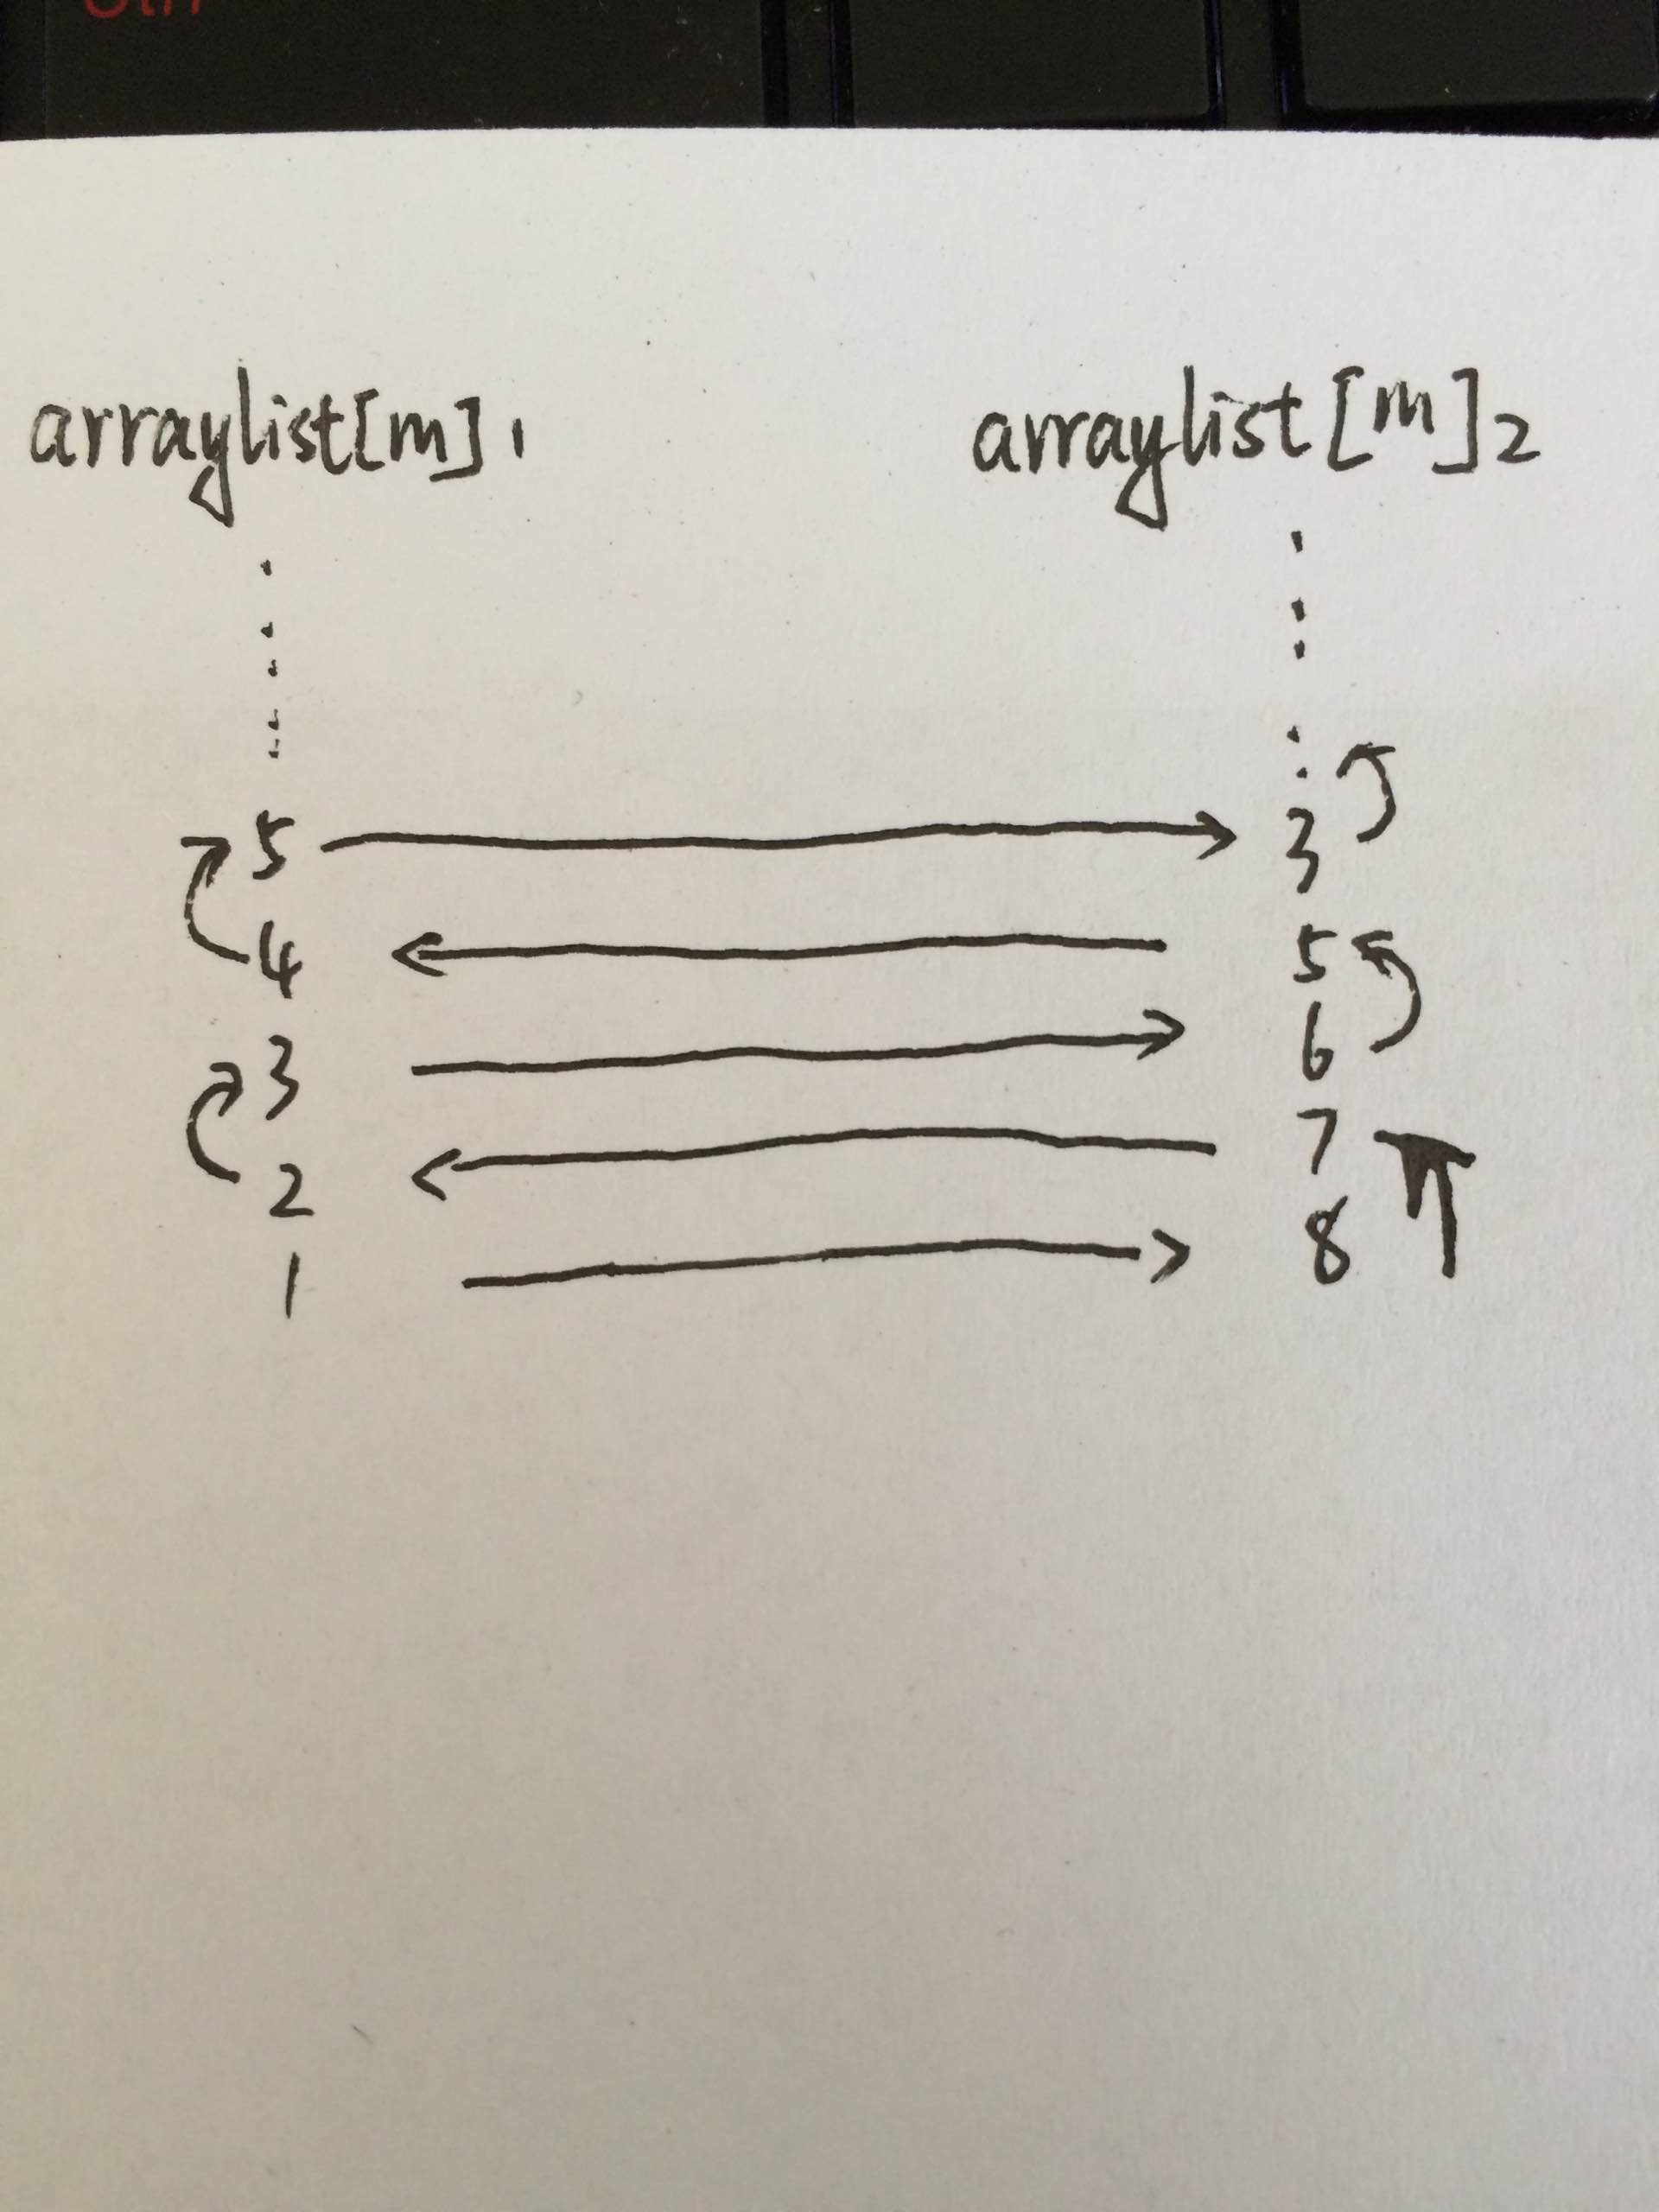 arraylist[m]1 arraylist[m]2
5 3
4 5
3 6
2 7
1 8